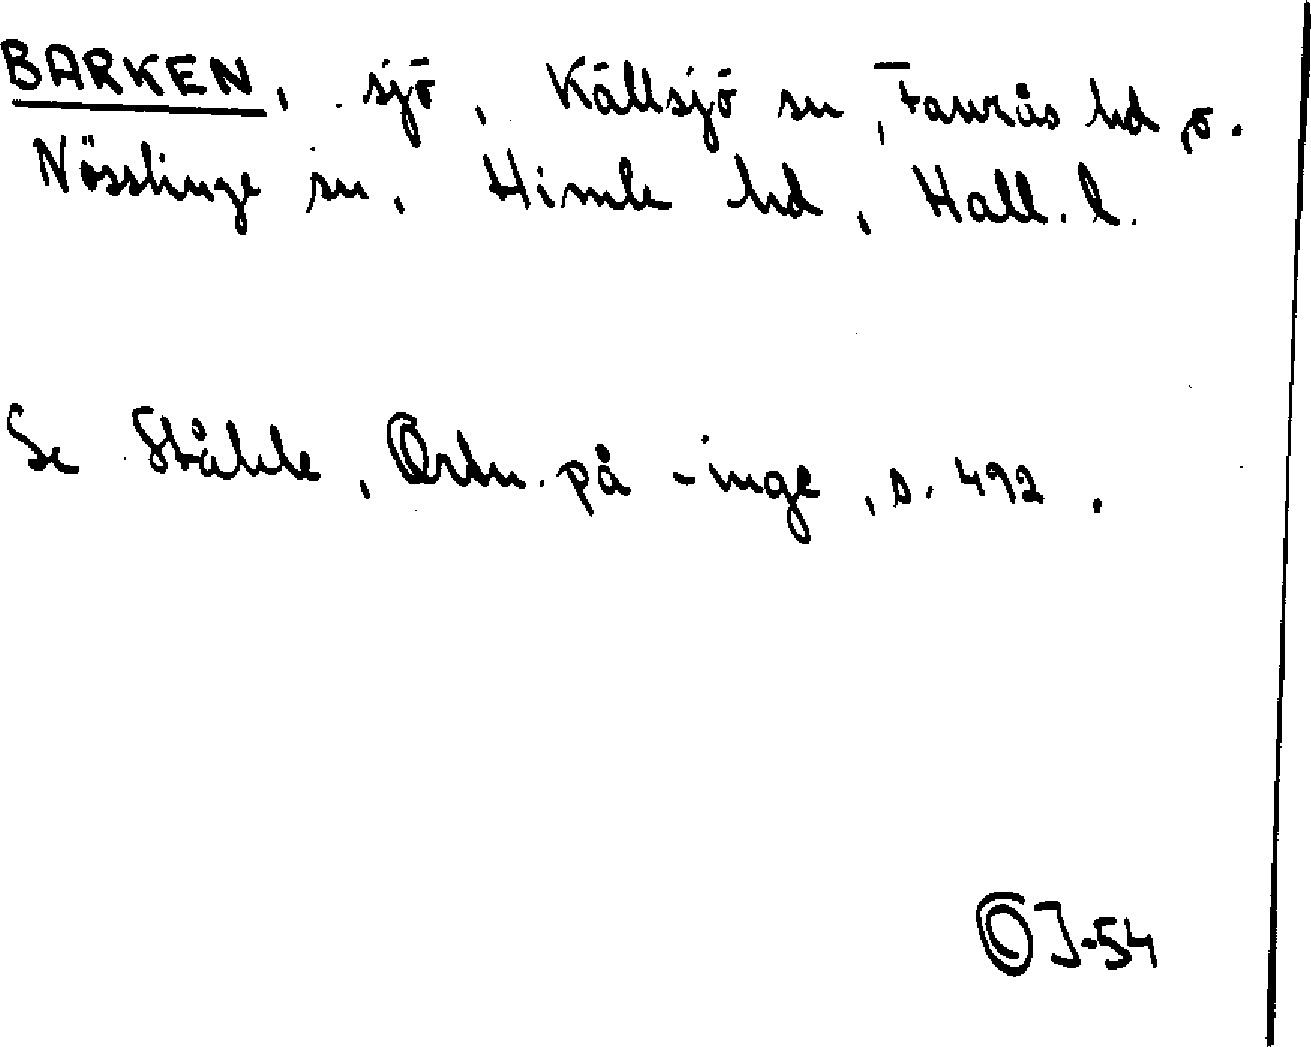 BARKEN, sjö, Källsjö sn, Faurås hd, o.
Nösslinge sn, Himle hd, Hall. l.
Se Ståhle, Ortn. på -inge, s. 492.
OJ-54